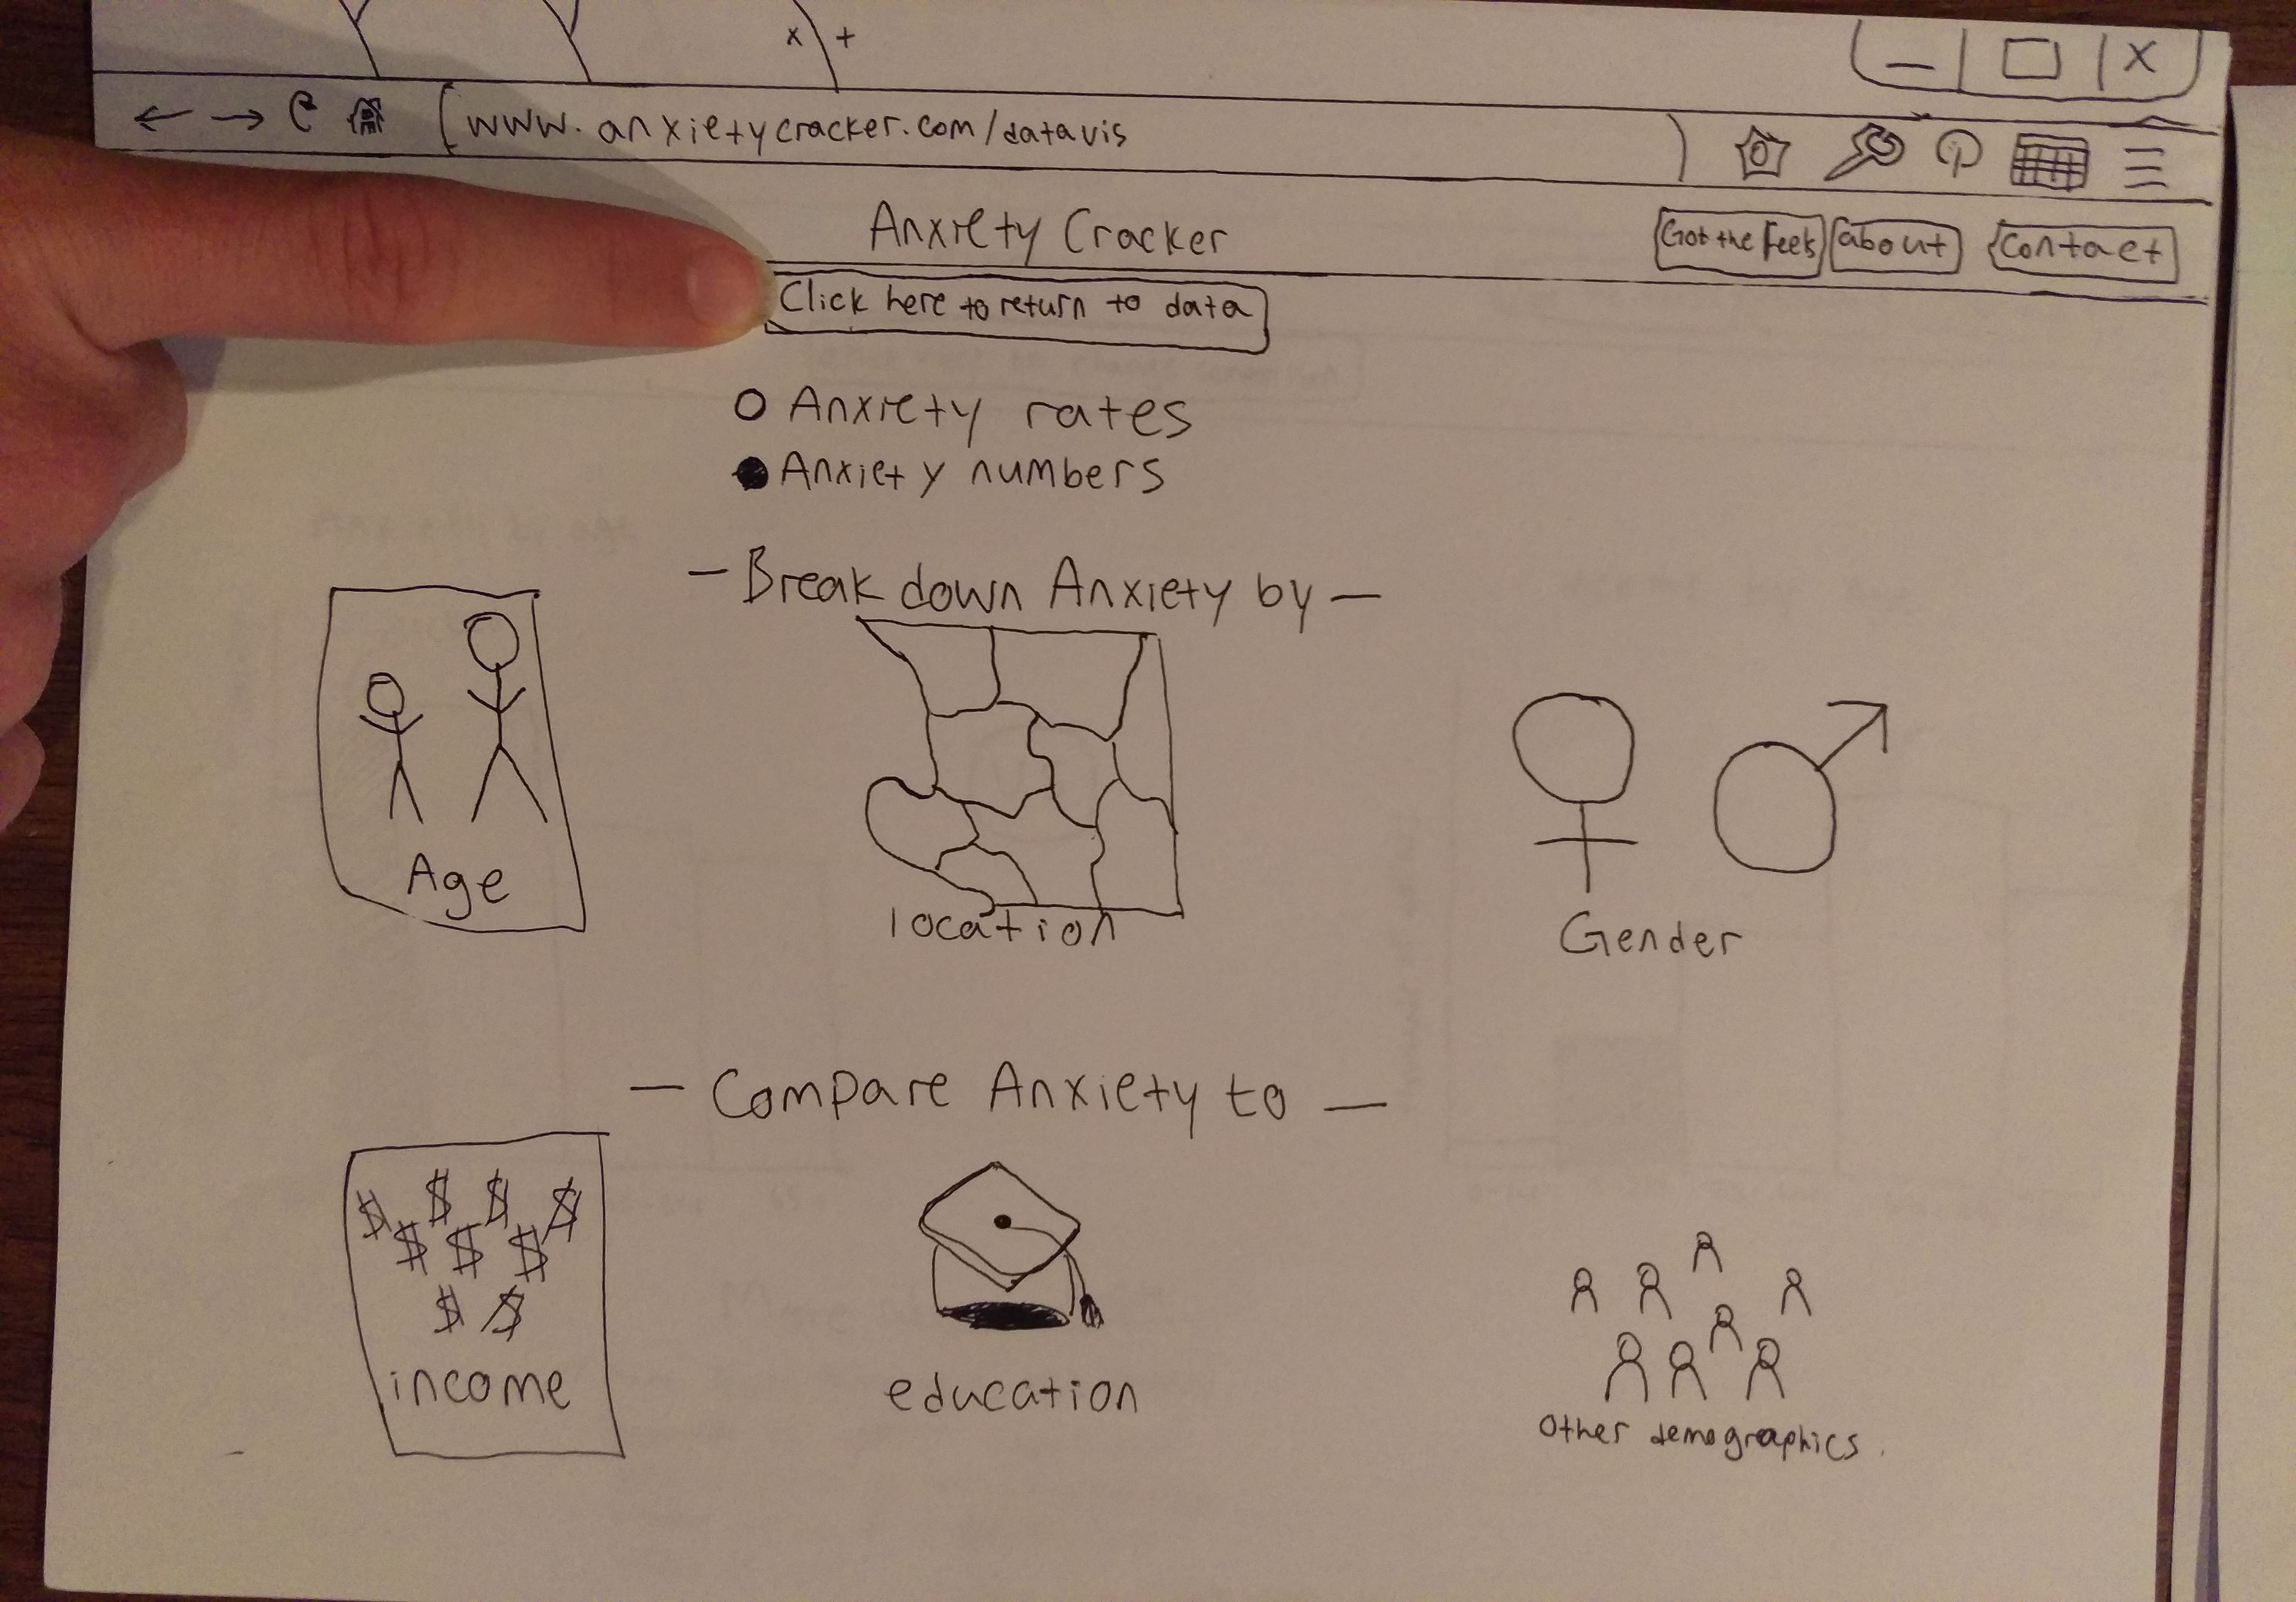 x +
www.anxietycracker.com/datavis
Anxiety Cracker
Got the Feels
about
contact
Click here to return to data
Anxiety rates
Anxiety numbers
- Break down Anxiety by -
Age
location
Gender
- Compare Anxiety to -
$ $ $ $
$ $ $
$ $
income
education
Other demographics